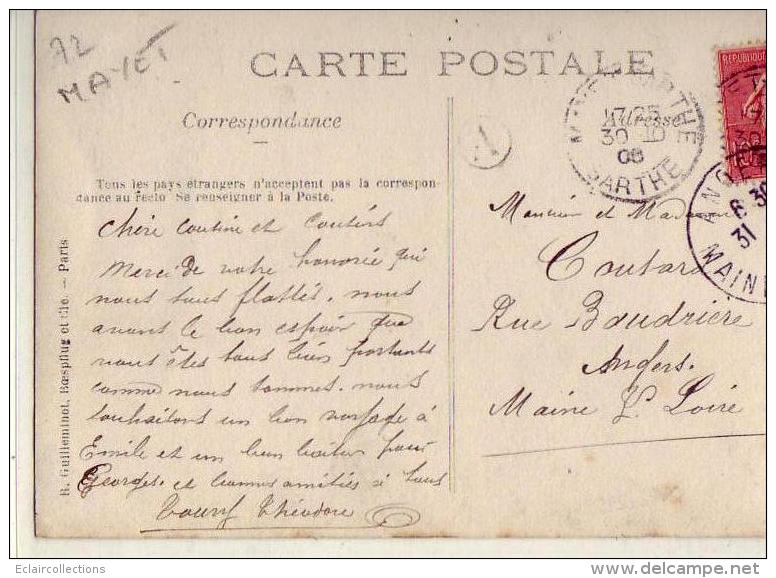 72
MAYET
CARTE POSTALE
Correspondance
Adresse
MAYET SARTHE
17 25
30 10
08
SARTHE
A
REPUBLIQUE
10
ANGERS
6 30
31
MAINE
Tous les pays étrangers n'acceptent pas la correspon-
dance au recto Se renseigner à la Poste.
R. Guilleminot, Bœspflug et Cie. — Paris
Chère Cousine et Cousins
Merci de votre honorée qui
nous tous flattés. nous
avons le bon espoir que
vous êtes tous bien portants
comme nous sommes. nous
souhaitons un bon voyage à
Emile et un bon
Georges. et bonnes amitiés à tous
Théodore
Monsieur et Madame
Coutard
Rue Baudrière
Angers.
Maine & Loire
Eclaircollections
www.delcampe.net